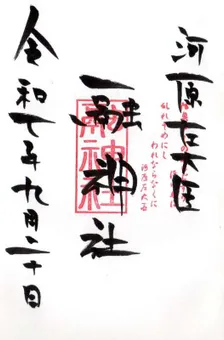 河原左大臣
乱れそめにし
われならなくに
河原左大臣
融神社
令和七年九月二十日